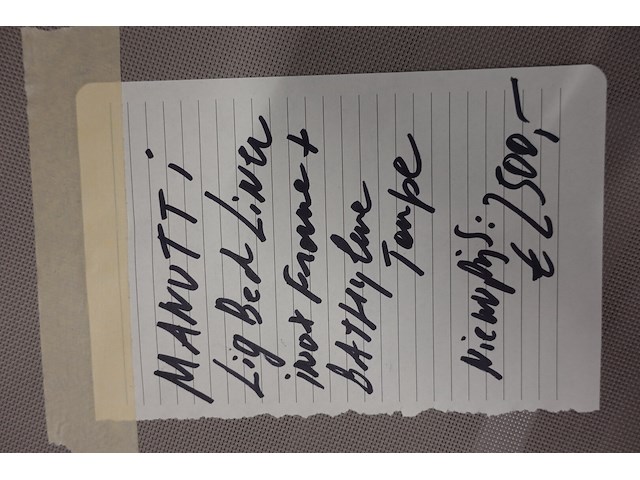 MANUTTI
Lig Bed Liner
inox Frame +
BATHyline
Taupe
Nieuwprijs:
€ 2500,-